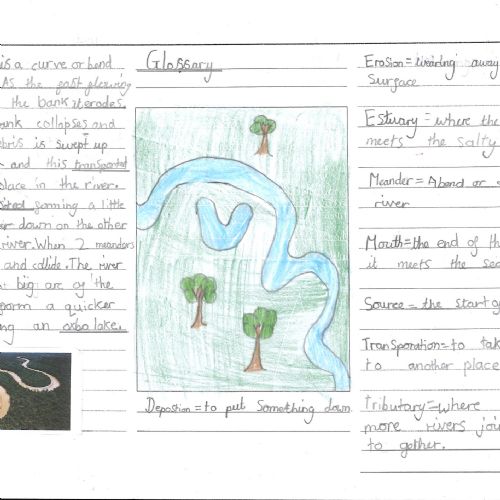 is a curve or bend
As the fast flowing
the bank it erodes.
bank collapses and
debris is swept up
and this transported
place in the river.
forming a little
down on the other
river. When 2 meanders
and collide. The river
big arc of the
form a quicker
ing an oxbo lake.
Glossary
Depostion = to put something down
Erosion = wearing away
Surface
Estuary = where the
meets the salty
Meander = A bend or
river
Mouth = the end of th
it meets the sea
Source = the start of
Transporation = to tak
to another place
tributary = where
more rivers joi
to gether.